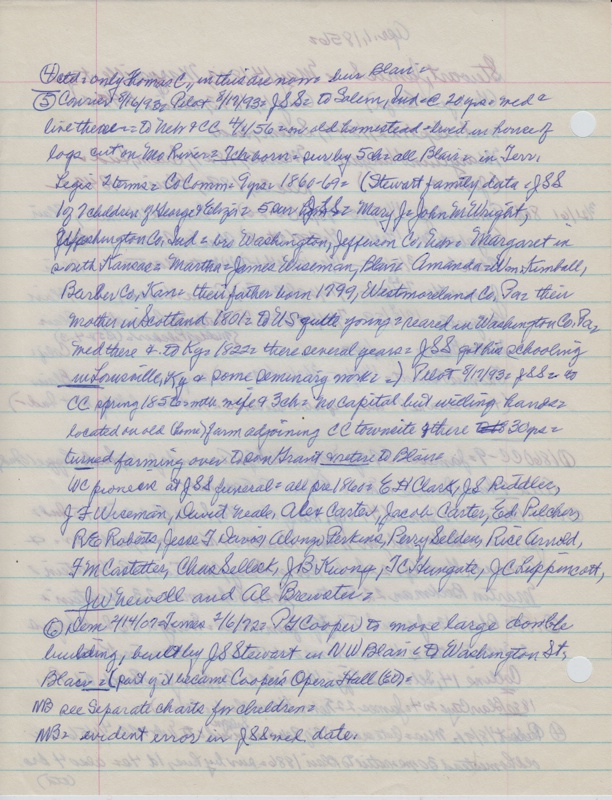 ④ ctd = only Thomas C., in this are now = bur Blair =
⑤ Courier 9/16/93 = Pilot 9/17/93 = JSS = to Salem, Ind = @ 20 yrs = med &
live there = to Neb & CC 4/4/56 = on old homestead = lived in house of
logs cut on Mo River = 7 ch born = sur by 5 ch = all Blair = in Terr.
Legis 2 terms = Co Comm = 9 yrs = 1860-69 = (Stewart family data = JSS
1 of 7 children of George & Eliza = 5 sur JSS = Mary J = John M Wright,
Washington Co, Ind = bro Washington, Jefferson Co, = Margaret in
south Kansas = Martha = James Wiseman, Blair = Amanda = Wm. Kimball,
Barber Co, Kan = their father born 1799, Westmoreland Co, Pa = their
mother in Scotland 1801 = to US quite young = reared in Washington Co. Pa,
med there & to Ky = 1822 = there several years = JSS got his schooling
in Louisville, Ky & some seminary work =) Pilot 9/17/93 = JSS = to
CC spring 1856 = with wife & 3 ch = no capital but willing hands =
located on old (home) farm adjoining CC townsite & there 30 yrs =
turned farming over to son Grant & retire to Blair
WC pioneers at JSS funeral = all pre 1860 = E H Clark, JS Riddler,
J F Wiseman, Dewit Neale, Alex Carter, Jacob Carter, Ed Pilcher,
R E Roberts, Jesse T. Davis, Alonzo Perkins, Perry Selden, Rice Arnold,
F M Castetter, Chas Selleck, J B Kuony, T C Hungate, J C Lippincott,
J W Newell and Al Brewster =
⑥ Dem 2/14/07 = Times 2/6/72 = P G Cooper to move large double
building, built by JS Stewart in N W Blair = to Washington St,
Blair = (part of it became Coopers Opera Hall (ED) =
NB see Separate charts for children =
NB = evident error in JSS med date.